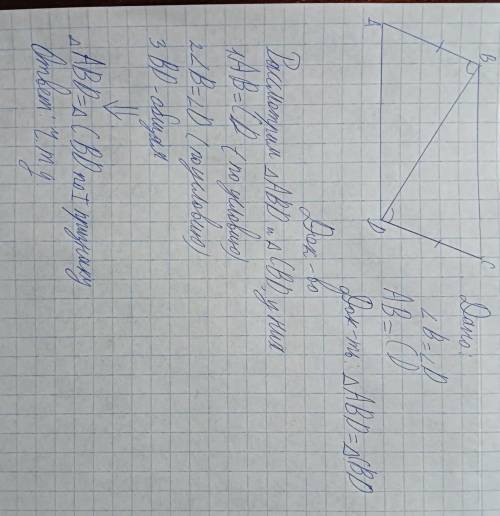 A
B
C
D
Дано:
∠B=∠D
AB=CD
Док-ть: △ABD=△CBD
Док-во
Рассмотрим △ABD и △CBD, у них
1 AB=CD (по условию)
2 ∠B=∠D (по условию)
3 BD-общая
↓
△ABD=△CBD по I признаку
Ответ: Ч.т.д